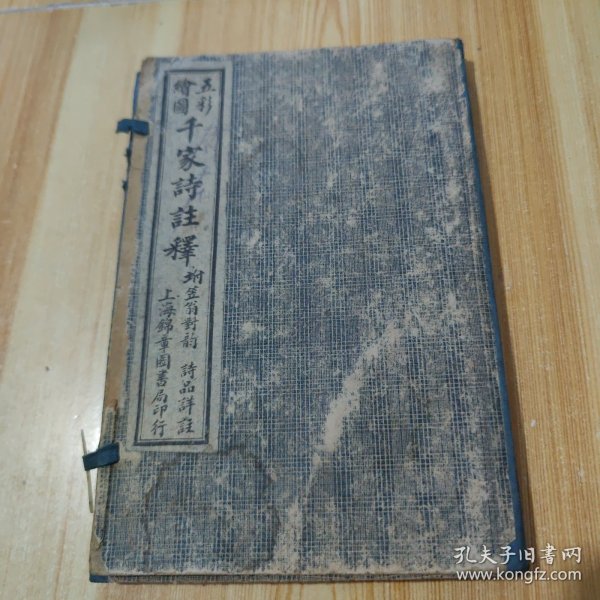 五彩
繪圖
千家詩註釋
附笠翁對韵 詩品詳註
上海錦章圖書局印行
孔夫子旧书网
www.kongfz.com